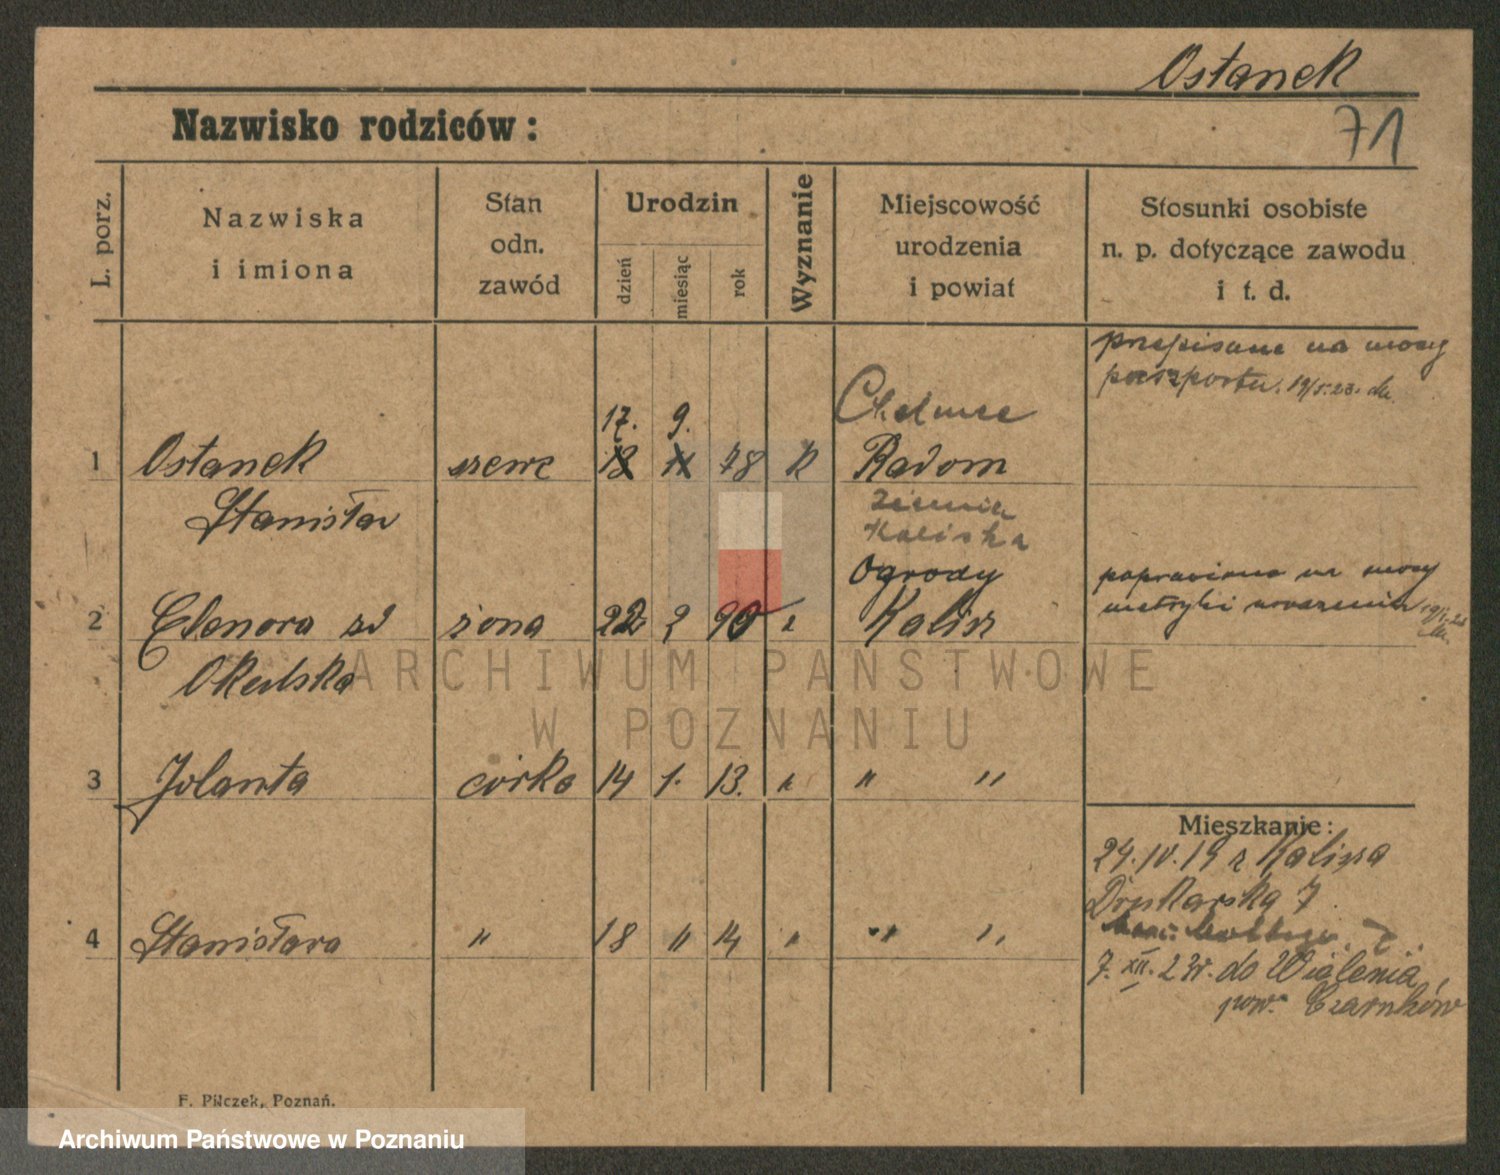 Ostanek
Nazwisko rodziców:
71
L. porz.
Nazwiska
i imiona
Stan
odn.
zawód
Urodzin
dzień
miesiąc
rok
Wyznanie
Miejscowość
urodzenia
i powiat
Stosunki osobiste
n. p. dotyczące zawodu
i t. d.
przepisane na mocy
paszportu. 19/5.23.
Chelmce
17. 9.
1 Ostanek szewc 18 11 78 k Radom
Stanisław
Ziemia
Kaliska
Ogrody
poprawiono na mocy
metryki urodzenia
2 Elenora zd żona 22 2 90 " Kalisz
Okulska
ARCHIWUM PAŃSTWOWE
W POZNANIU
3 Jolanta córka 14 1. 13. " " "
Mieszkanie:
24.IV.19 z Kalisza
Drukarska 7
4 Stanisława " 18 " 14 " " "
7.XII.23r. do Wielenia
pow. Czarnków
F. Pilczek, Poznań.
Archiwum Państwowe w Poznaniu